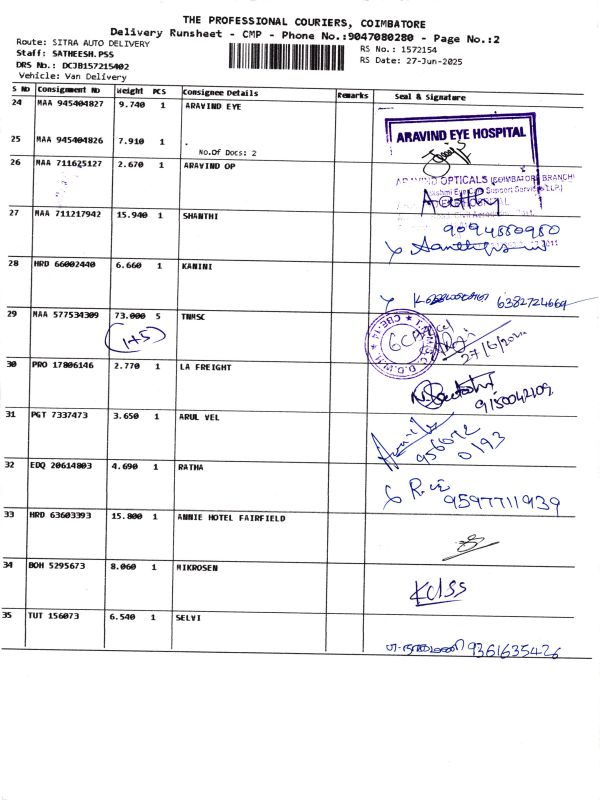 THE PROFESSIONAL COURIERS, COIMBATORE
Delivery Runsheet - CMP - Phone No.:9047080280 - Page No.:2
Route: SITRA AUTO DELIVERY
RS No.: 1572154
Staff: SATHEESH.PSS
RS Date: 27-Jun-2025
DRS No.: DCJB157215402
Vehicle: Van Delivery
S No Consignment No Weight PCS Consignee Details Remarks Seal & Signature
24 MAA 945404827 9.740 1 ARAVIND EYE
ARAVIND EYE HOSPITAL
25 MAA 945404826 7.910 1 .
No.Of Docs: 2
26 MAA 711625127 2.670 1 ARAVIND OP
ARAVIND OPTICALS (COIMBATORE BRANCH)
27 MAA 711217942 15.940 1 SHANTHI
9094880980
28 HRD 66002440 6.660 1 KANINI
6382724669
29 MAA 577534309 73.000 5 TNMSC
(1+5)
27/6/2025
30 PRO 17806146 2.770 1 LA FREIGHT
9150042109
31 PGT 7337473 3.650 1 ARUL VEL
956092
0193
32 EDQ 20614803 4.690 1 RATHA
95977111939
33 HRD 63603393 15.800 1 ANNIE HOTEL FAIRFIELD
34 BOH 5295673 8.060 1 MIKROSEN
35 TUT 156073 6.540 1 SELVI
9361635426